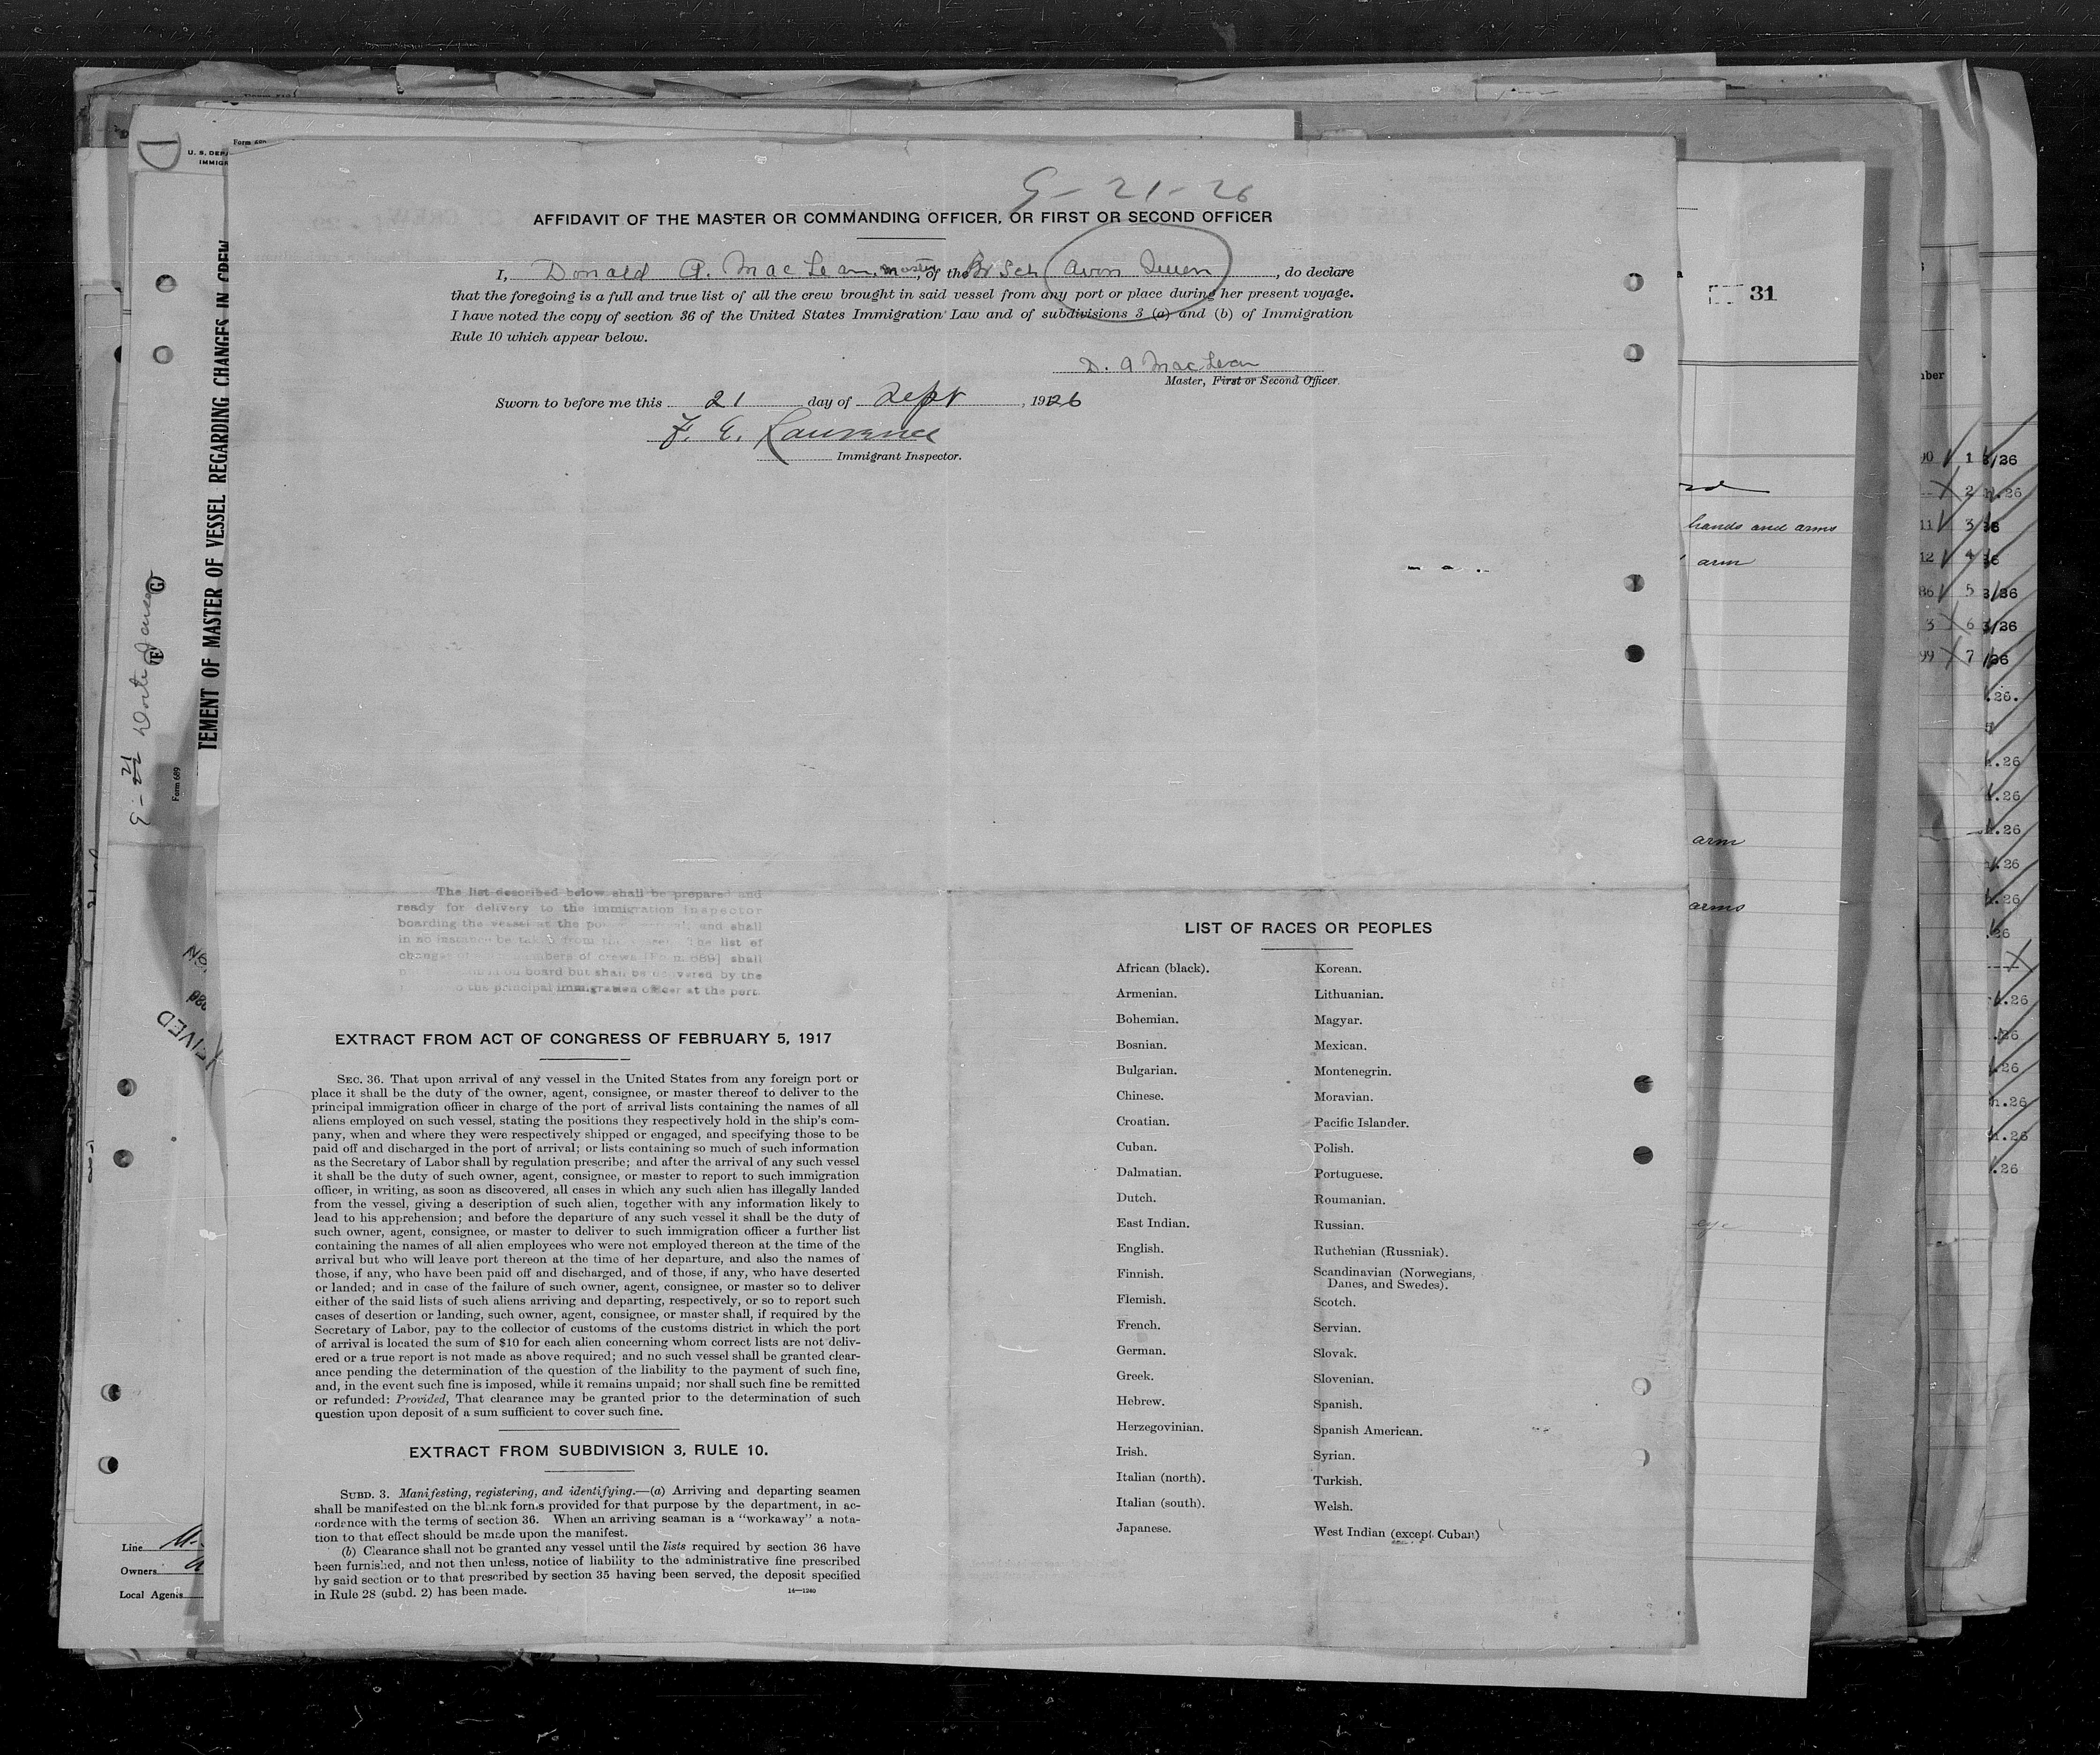 9-21-26
AFFIDAVIT OF THE MASTER OR COMMANDING OFFICER, OR FIRST OR SECOND OFFICER
I, Donald A. MacLean, master, of the Br Sch Avon Queen, do declare
that the foregoing is a full and true list of all the crew brought in said vessel from any port or place during her present voyage.
I have noted the copy of section 36 of the United States Immigration Law and of subdivisions 3 (a) and (b) of Immigration
Rule 10 which appear below.
D. A MacLean
Master, First or Second Officer.
Sworn to before me this 21 day of Sept, 1926
F. E. Lawrence
Immigrant Inspector.
The list described below shall be prepared and
ready for delivery to the immigration inspector
boarding the vessel at the and shall
in no instance be from the list of
members of crews 689] shall
on board but shall be delivered by the
to the principal immigration officer at the port.
EXTRACT FROM ACT OF CONGRESS OF FEBRUARY 5, 1917
SEC. 36. That upon arrival of any vessel in the United States from any foreign port or
place it shall be the duty of the owner, agent, consignee, or master thereof to deliver to the
principal immigration officer in charge of the port of arrival lists containing the names of all
aliens employed on such vessel, stating the positions they respectively hold in the ship's com-
pany, when and where they were respectively shipped or engaged, and specifying those to be
paid off and discharged in the port of arrival; or lists containing so much of such information
as the Secretary of Labor shall by regulation prescribe; and after the arrival of any such vessel
it shall be the duty of such owner, agent, consignee, or master to report to such immigration
officer, in writing, as soon as discovered, all cases in which any such alien has illegally landed
from the vessel, giving a description of such alien, together with any information likely to
lead to his apprehension; and before the departure of any such vessel it shall be the duty of
such owner, agent, consignee, or master to deliver to such immigration officer a further list
containing the names of all alien employees who were not employed thereon at the time of the
arrival but who will leave port thereon at the time of her departure, and also the names of
those, if any, who have been paid off and discharged, and of those, if any, who have deserted
or landed; and in case of the failure of such owner, agent, consignee, or master so to deliver
either of the said lists of such aliens arriving and departing, respectively, or so to report such
cases of desertion or landing, such owner, agent, consignee, or master shall, if required by the
Secretary of Labor, pay to the collector of customs of the customs district in which the port
of arrival is located the sum of $10 for each alien concerning whom correct lists are not deliv-
ered or a true report is not made as above required; and no such vessel shall be granted clear-
ance pending the determination of the question of the liability to the payment of such fine,
and, in the event such fine is imposed, while it remains unpaid; nor shall such fine be remitted
or refunded: Provided, That clearance may be granted prior to the determination of such
question upon deposit of a sum sufficient to cover such fine.
EXTRACT FROM SUBDIVISION 3, RULE 10.
SUBD. 3. Manifesting, registering, and identifying.—(a) Arriving and departing seamen
shall be manifested on the blank forms provided for that purpose by the department, in ac-
cordence with the terms of section 36. When an arriving seaman is a "workaway" a nota-
tion to that effect should be made upon the manifest.
(b) Clearance shall not be granted any vessel until the lists required by section 36 have
been furnished, and not then unless, notice of liability to the administrative fine prescribed
by said section or to that prescribed by section 35 having been served, the deposit specified
in Rule 28 (subd. 2) has been made.
14—1240
LIST OF RACES OR PEOPLES
African (black).
Armenian.
Bohemian.
Bosnian.
Bulgarian.
Chinese.
Croatian.
Cuban.
Dalmatian.
Dutch.
East Indian.
English.
Finnish.
Flemish.
French.
German.
Greek.
Hebrew.
Herzegovinian.
Irish.
Italian (north).
Italian (south).
Japanese.
Korean.
Lithuanian.
Magyar.
Mexican.
Montenegrin.
Moravian.
Pacific Islander.
Polish.
Portuguese.
Roumanian.
Russian.
Ruthenian (Russniak).
Scandinavian (Norwegians,
Danes, and Swedes).
Scotch.
Servian.
Slovak.
Slovenian.
Spanish.
Spanish American.
Syrian.
Turkish.
Welsh.
West Indian (except Cuban)
U. S. DEP
IMMIGR
TEMENT OF MASTER OF VESSEL REGARDING CHANGES IN CREW
Form 689
Line
Owners
Local Agents
31
hands and arms
arm
arm
arms
eye